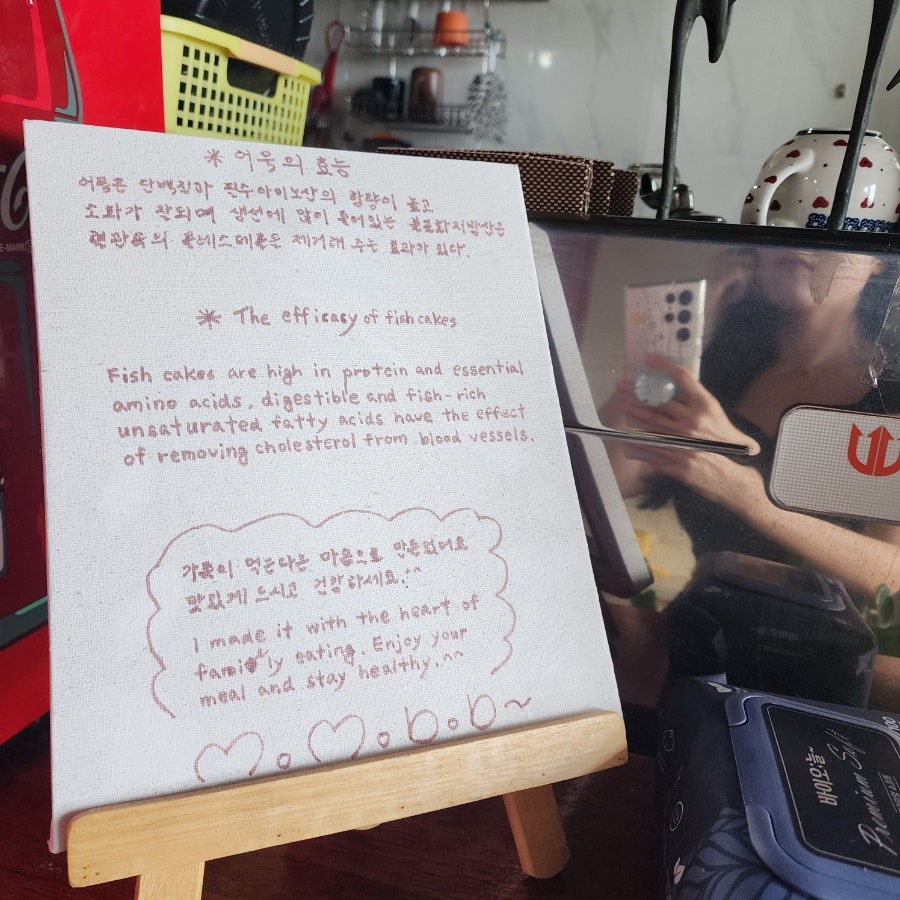 * 어묵의 효능
어묵은 단백질과 필수아미노산의 함량이 높고
소화가 잘되며 생선에 많이 들어있는 불포화지방산은
혈관속의 콜레스테롤을 제거해 주는 효과가 있다.
* The efficacy of fish cakes
Fish cakes are high in protein and essential
amino acids, digestible and fish-rich
unsaturated fatty acids have the effect
of removing cholesterol from blood vessels.
가족이 먹는다는 마음으로 만들었어요
맛있게 드시고 건강하세요.^^
I made it with the heart of
family eating. Enjoy your
meal and stay healthy.^^
바이오;늘
Premium Soft
100